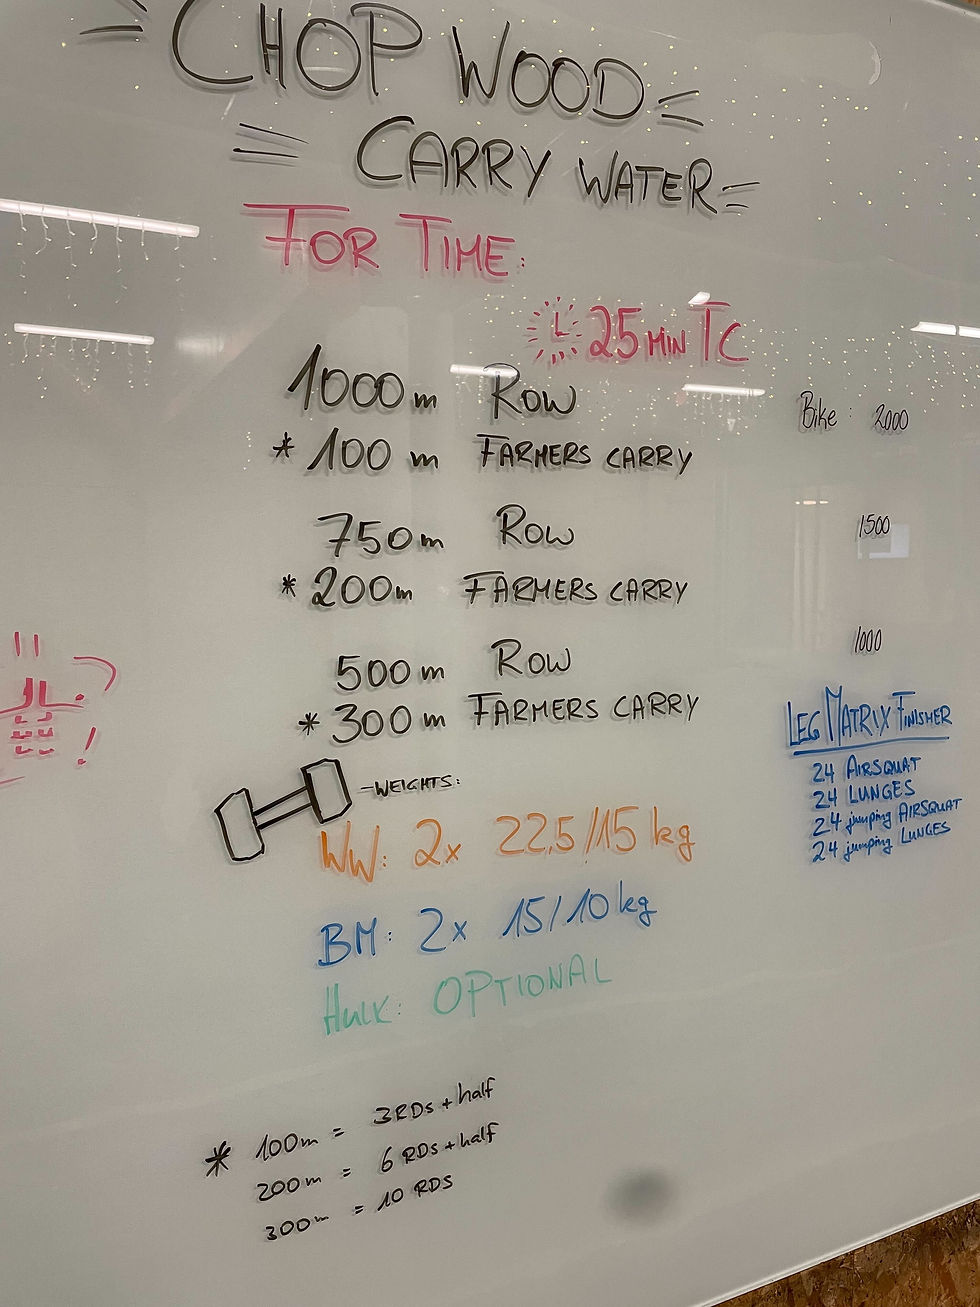 CHOP WOOD
CARRY WATER
FOR TIME:
25 MIN TC
1000 m ROW
* 100 m FARMERS CARRY
750 m ROW
* 200 m FARMERS CARRY
500 m ROW
* 300 m FARMERS CARRY
Bike: 2000
1500
1000
LEG MATRIX FINISHER
24 AIRSQUAT
24 LUNGES
24 jumping AIRSQUAT
24 jumping LUNGES
- WEIGHTS:
WW: 2x 22,5/15 kg
BM: 2x 15/10 kg
Hulk: OPTIONAL
* 100m = 3 RDs + half
200m = 6 RDs + half
300m = 10 RDS